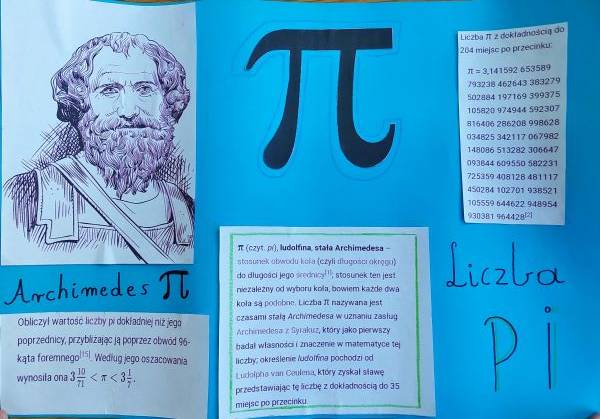 π
Archimedes π
Obliczył wartość liczby pi dokładniej niż jego
poprzednicy, przybliżając ją poprzez obwód 96-
kąta foremnego[15]. Według jego oszacowania
wynosiła ona 3 10/71 < π < 3 1/7.
π (czyt. pi), ludolfina, stała Archimedesa –
stosunek obwodu koła (czyli długości okręgu)
do długości jego średnicy[1]; stosunek ten jest
niezależny od wyboru koła, bowiem każde dwa
koła są podobne. Liczba π nazywana jest
czasami stałą Archimedesa w uznaniu zasług
Archimedesa z Syrakuz, który jako pierwszy
badał własności i znaczenie w matematyce tej
liczby; określenie ludolfina pochodzi od
Ludolpha van Ceulena, który zyskał sławę
przedstawiając tę liczbę z dokładnością do 35
miejsc po przecinku.
Liczba π z dokładnością do
204 miejsc po przecinku:
π = 3,141592 653589
793238 462643 383279
502884 197169 399375
105820 974944 592307
816406 286208 998628
034825 342117 067982
148086 513282 306647
093844 609550 582231
725359 408128 481117
450284 102701 938521
105559 644622 948954
930381 964428[2]
Liczba
Pi